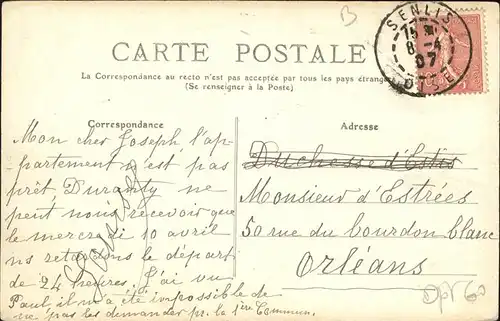 B
SENLIS
15
8 -4
07
OISE
CARTE POSTALE
La Correspondance au recto n'est pas acceptée par tous les pays étrang
(Se renseigner à la Poste)
Correspondance
Adresse
Mon cher Joseph l'ap-
partement n'est pas
prêt Duranly ne
peut nous recevoir que
le mercredi 10 avril
ns retardons le départ
de 24 heures, j'ai vu
Paul, il m'a été impossible de
ne pas les demander pr. la 1ère Commun.
Duchesse d'Estis
Monsieur d'Estrées
50 rue du bourdon blanc
Orléans
Dpt 60